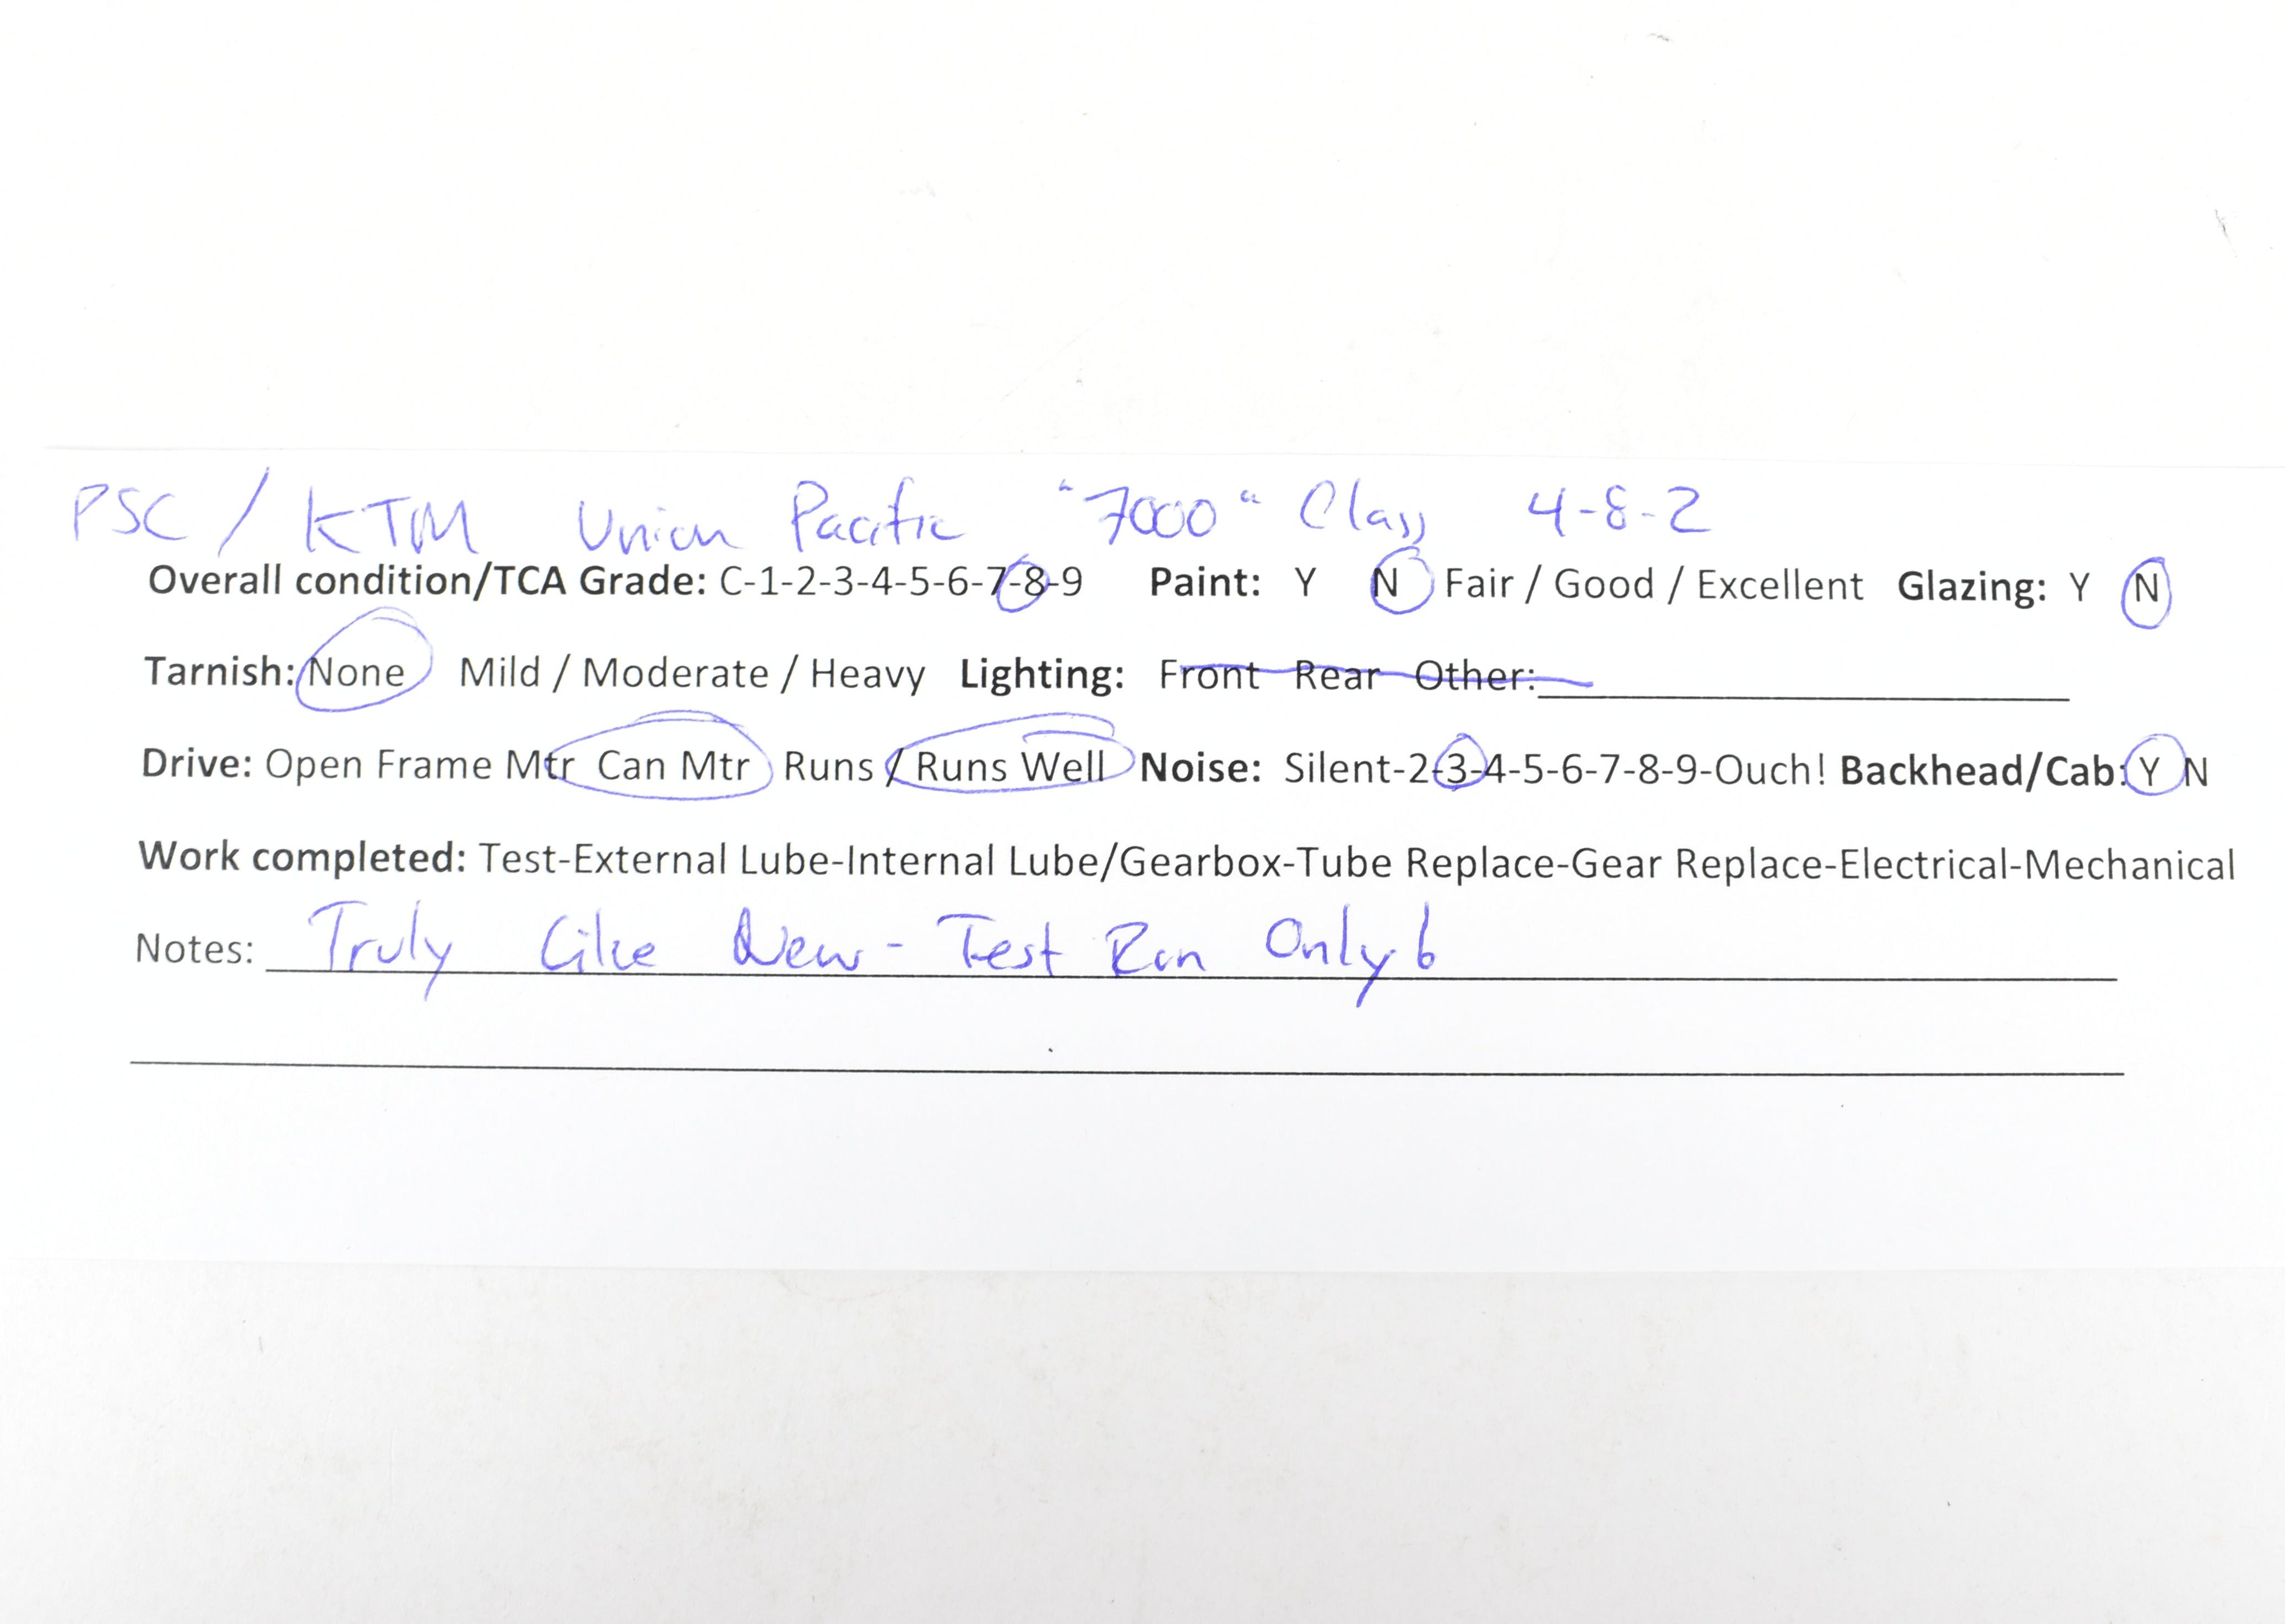 PSC / KTM Union Pacific "7000" Class 4-8-2
Overall condition/TCA Grade: C-1-2-3-4-5-6-7-8-9 Paint: Y N Fair / Good / Excellent Glazing: Y N
Tarnish: None Mild / Moderate / Heavy Lighting: Front Rear Other:
Drive: Open Frame Mtr Can Mtr Runs / Runs Well Noise: Silent-2-3-4-5-6-7-8-9-Ouch! Backhead/Cab: Y N
Work completed: Test-External Lube-Internal Lube/Gearbox-Tube Replace-Gear Replace-Electrical-Mechanical
Notes: Truly Like New - Test Run Only